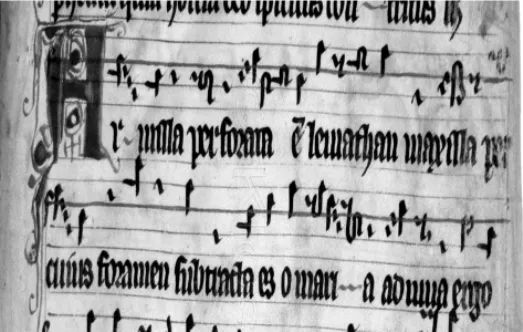 spiritus con tritus
Ar milla perforata ē leuiathan maxilla per
cuius foramen subtracta es o mari a adiuua ergo